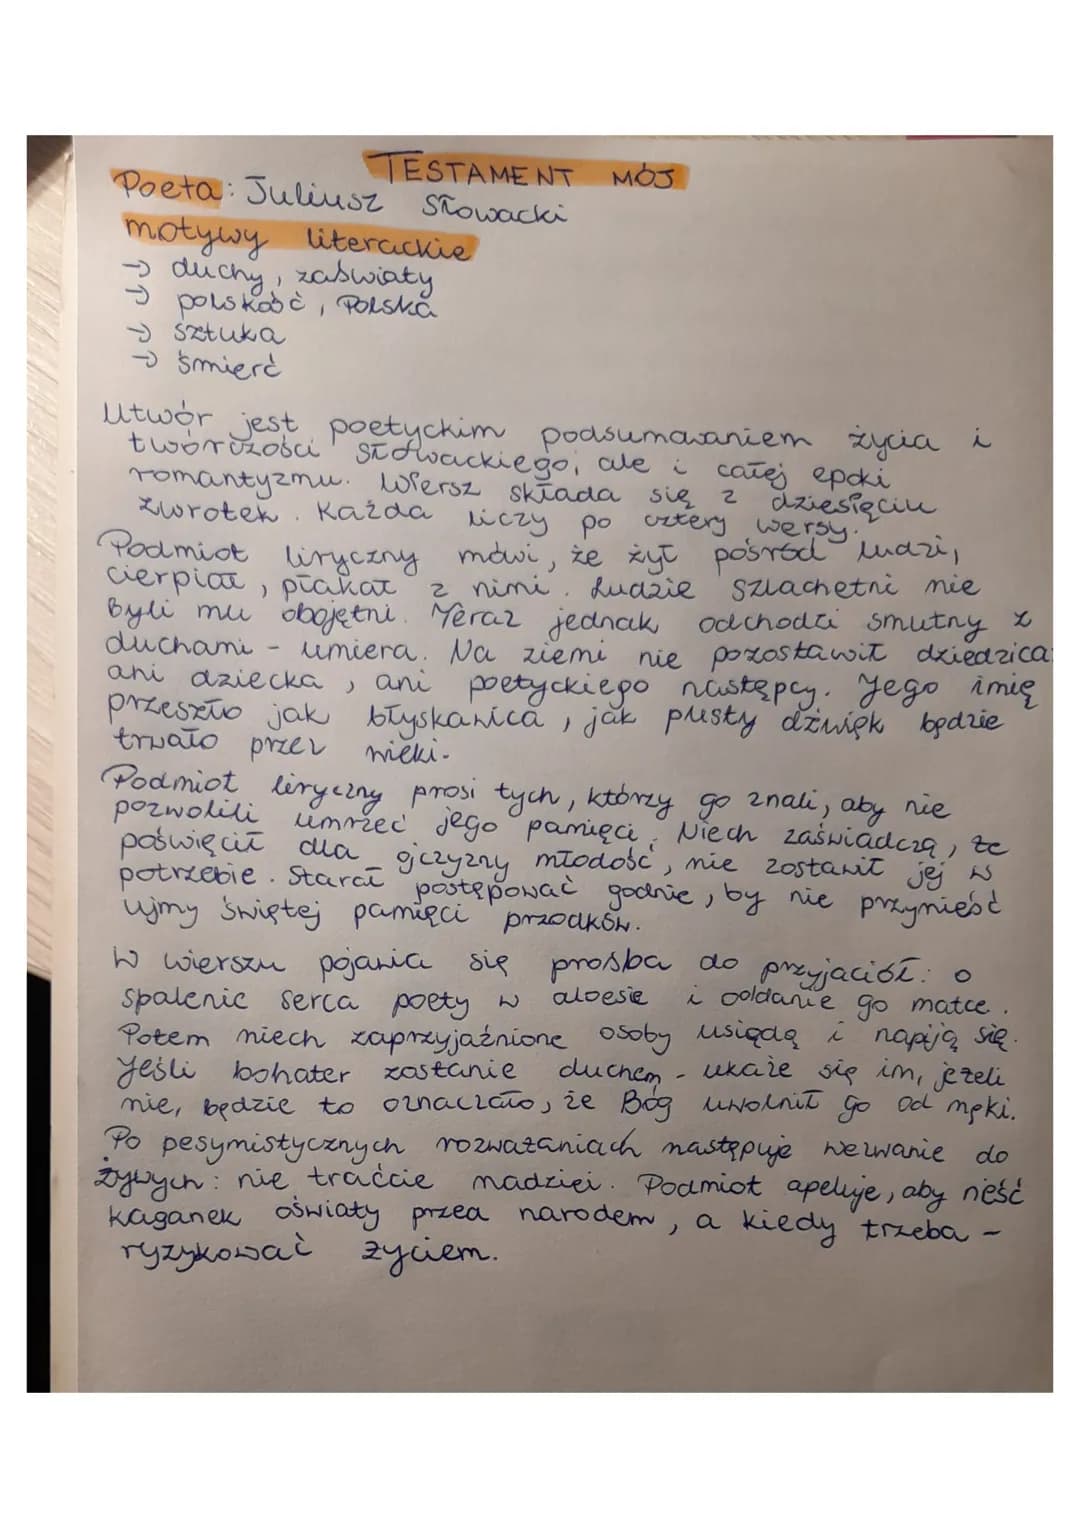 TESTAMENT MÓJ
Poeta: Juliusz Słowacki
motywy literackie
→ duchy, zaświaty
→ polskość, Polska
→ sztuka
→ śmierć
Utwór jest poetyckim podsumowaniem życia i
twórczości Słowackiego, ale i całej epoki
romantyzmu. Wiersz składa się z dziesięciu
zwrotek. Każda liczy po cztery wersy.
Podmiot liryczny mówi, że żył pośród ludzi,
cierpiał, płakał z nimi. Ludzie szlachetni nie
byli mu obojętni. Teraz jednak odchodzi smutny z
duchami - umiera. Na ziemi nie pozostawił dziedzica
ani dziecka, ani poetyckiego następcy. Jego imię
przeszło jak błyskawica, jak pusty dźwięk będzie
trwało przez wieki.
Podmiot liryczny prosi tych, którzy go znali, aby nie
pozwolili umrzeć jego pamięci. Niech zaświadczą, że
poświęcił dla ojczyzny młodość, nie zostawił jej w
potrzebie. Starał postępować godnie, by nie przynieść
ujmy świętej pamięci przodków.
W wierszu pojawia się prośba do przyjaciół: o
spalenie serca poety w aloesie i oddanie go matce.
Potem niech zaprzyjaźnione osoby usiądą i napiją się.
Jeśli bohater zostanie duchem - ukaże się im, jeżeli
nie, będzie to oznaczało, że Bóg uwolnił go od męki.
Po pesymistycznych rozważaniach następuje wezwanie do
żywych: nie traćcie nadziei. Podmiot apeluje, aby nieść
kaganek oświaty przed narodem, a kiedy trzeba -
ryzykować życiem.